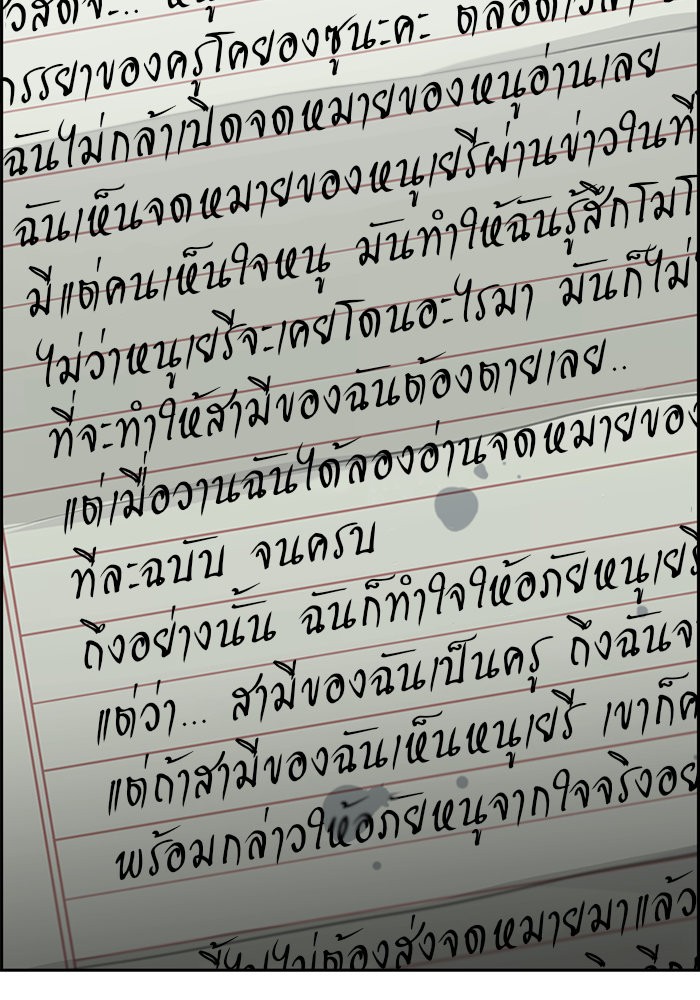 วัสดีจ้ะ...
ภรรยาของครูโคยองซูนะคะ ตลอดเวลา
ฉันไม่กล้าเปิดจดหมายของหนูอ่านเลย
ฉันเห็นจดหมายของหนูเยรีผ่านข่าวในที
มีแต่คนเห็นใจหนู มันทำให้ฉันรู้สึกโมโ
ไม่ว่าหนูเยรีจะเคยโดนอะไรมา มันก็ไม่
ที่จะทำให้สามีของฉันต้องตายเลย..
แต่เมื่อวานฉันได้ลองอ่านจดหมายของ
ทีละฉบับ จนครบ
ถึงอย่างนั้น ฉันก็ทำใจให้อภัยหนูเยรี
แต่ว่า... สามีของฉันเป็นครู ถึงฉันจ
แต่ถ้าสามีของฉันเห็นหนูเยรี เขาก็ค
พร้อมกล่าวให้อภัยหนูจากใจจริงอย
ไม่ต้องส่งจดหมายมาแล้ว